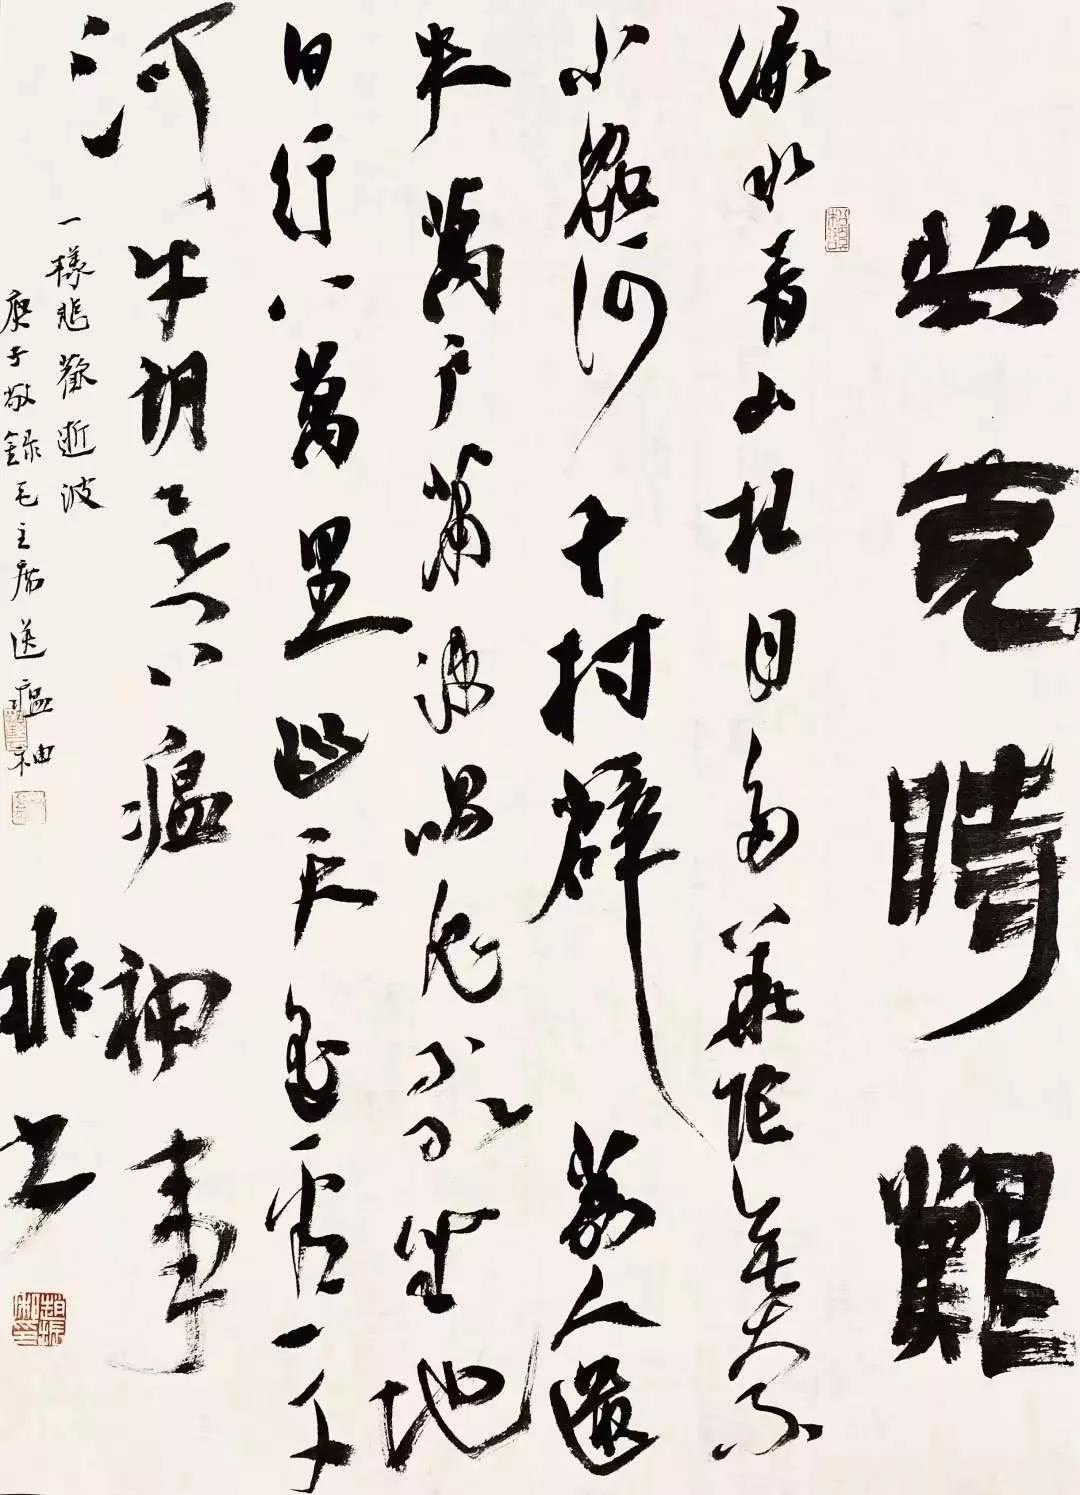 共克時艱
綠水青山枉自多華陀無奈
小蟲何千村薜荔人遺
矢萬戶蕭疎鬼唱歌坐地
日行八萬里巡天遙看一千
河牛郎欲問瘟神事
一樣悲歡逝波
庚子敬錄毛主席送瘟神
非书